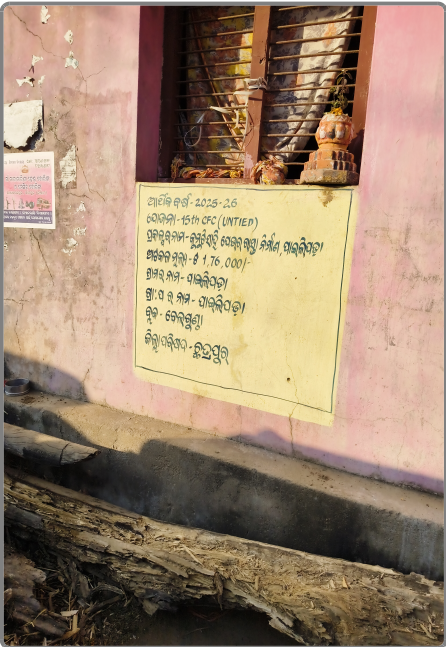 ଆର୍ଥିକ ବର୍ଷ - 2025-26
ଯୋଜନା - 15th CFC (UNTIED)
ପ୍ରକଳ୍ପର ନାମ - ପେଭର ରାସ୍ତା ନିର୍ମାଣ, ପାଇଲିପଡ଼ା
ଅଟକଳ ମୂଲ୍ୟ - ₹ 1,76,000/-
ଗ୍ରାମର ନାମ - ପାଇଲିପଡ଼ା
ଗ୍ରା.ପ ର ନାମ - ପାଇଲିପଡ଼ା
ବ୍ଲକ - ବେଲଗୁଣ୍ଠା
ଜିଲ୍ଲା ପରିଷଦ - ଛତ୍ରପୁର